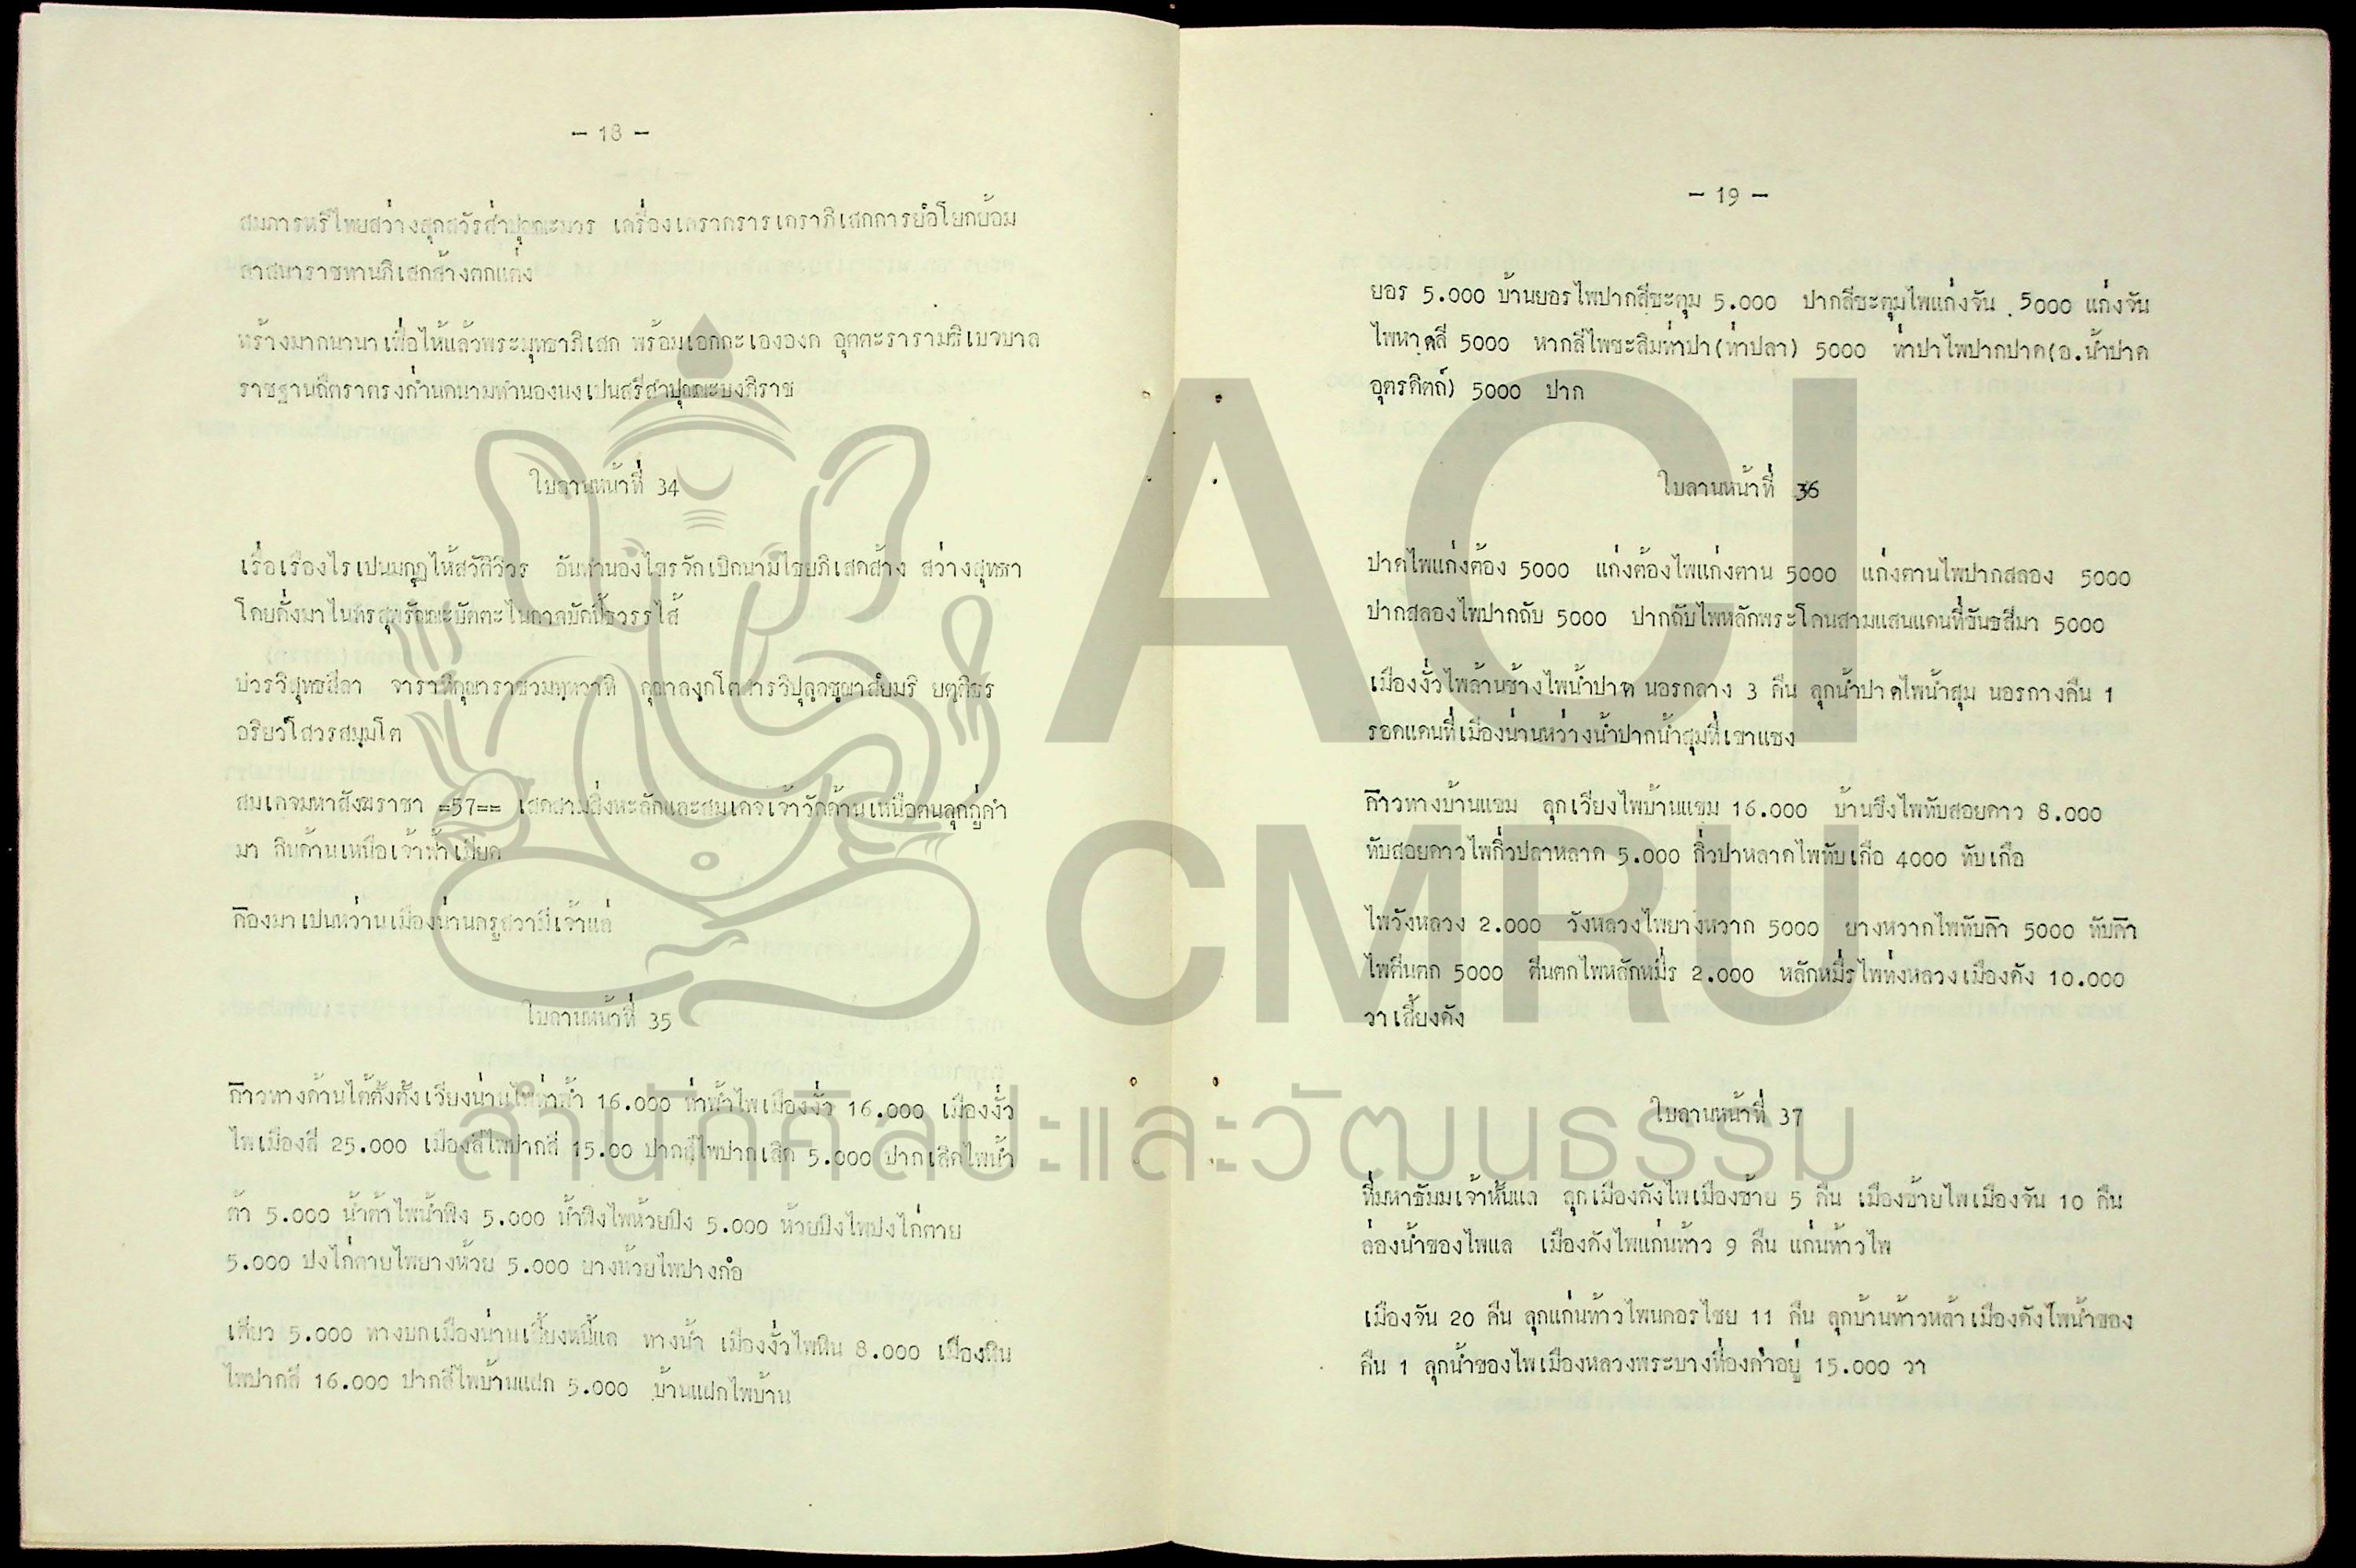 - 18 -
สมภารหรีไทยสว่างสุกสวัรส่ำปุณณะนวร เครื่อง การยอโยกย้อม
ลาสนาราชทานภิเสกส้างตกแต่ง
หร้างมากนานาเพื่อไห้แล้วพระมุทธาภิเสก พร้อมเอกกะเอององก อุตตะราราม
ราชฐานถืตราตรงก่ำนดนามทำนองนงเปนสรีสำปุณณะบงคิราช
ใบลานหน้าที่ 34
เรื่อเรืองไรเปนมกุฎไห้สวัติวิวร อันทำนองไขรวักเบิกนามไชยภิเสกส้าง สว่างสุทธา
โดยดั่งมาไนทรสุพรัณณะบัตตะไนกาลบัดนี้ธวรรไส้
บ่วรวิสุทธสีลา
อริยวํโสวรสมฺมโต
สมเดจมหาสังฆราชา =57== เสดสามสิ่งหะลักและสมเดจเจ้าวัดด้านเหนือตนลุกกู่คำ
มา กินด้านเหนือเจ้าฟ้าเมียด
กิองมาเปนหว่านเมืองน่านครูสวามีเจ้าแล่
ใบลานหน้าที่ 35
ก๊าวทางด้านไต้ตั้งตั้งเวียงน่านไพท่าฟ้า 16.000 ท่าฟ้าไพเมืองงั่ว 16.000 เมืองงั่ว
ไพเมืองลี 25.000 เมืองลีไพปากลี 15.00 ปากลีไพปากเสิด 5.000 ปากเสิดไพน้ำ
ต้า 5.000 น้ำต้าไพน้ำพิง 5.000 น้ำพิงไพห้วยปิง 5.000 ห้วยปิงไพปงไก่ตาย
5.000 ปงไก่ตายไพยางห้วย 5.000 ยางห้วยไพปางกอ
เดียว 5.000 ทางบกเมืองน่านเสี้ยงหนี้แล ทางน้ำ เมืองงั่วไพหิน 8.000 เมืองหิน
ไพปากลี 16.000 ปากลีไพบ้านแฝก 5.000 บ้านแฝกไพบ้าน
- 19 -
ยอร 5.000 บ้านยอรไพปากสีชะตุม 5.000 ปากสีชะตุมไพแก่งจัน 5000 แก่งจัน
ไพหาดลี 5000 หากลีไพชะลิมท่าปา(ท่าปลา) 5000 ท่าปาไพปากปาด(อ.น้ำปาด
อุตรดิตถ์) 5000 ปาก
ใบลานหน้าที่ 36
ปาดไพแก่งต้อง 5000 แก่งต้องไพแก่งตาน 5000 แก่งตานไพปากสลอง 5000
ปากสลองไพปากถับ 5000 ปากถับไพหลักพระโดนสามแสนแดนที่ขันธสีมา 5000
เมืองงั่วไพล้านช้างไพน้ำปาด นอรกลาง 3 คืน ลุกน้ำปาดไพน้ำสุม นอรกางคืน 1
รอดแดนที่เมืองน่านหว่างน้ำปากน้ำสุมที่เขาแซง
ก๊าวทางบ้านแขม ลุกเวียงไพบ้านแขม 16.000 บ้านขึงไพทับสอยดาว 8.000
ทับสอยดาวไพกิ่วปลาหลาด 5.000 กิ่วปาหลาดไพทับเกือ 4000 ทับเกือ
ไพวังหลวง 2.000 วังหลวงไพยางหวาก 5000 ยางหวากไพทับค๊า 5000 ทับค๊า
ไพตีนตก 5000 ตีนตกไพหลักหมื่ร 2.000 หลักหมื่รไพท่งหลวงเมืองคัง 10.000
วาเสี้ยงคัง
ใบลานหน้าที่ 37
ที่มหาธัมมเจ้าหั้นแล ลุกเมืองคังไพเมืองซ้าย 5 คืน เมืองซ้ายไพเมืองจัน 10 คืน
ล่องน้ำของไพแล เมืองคังไพแก่นท้าว 9 คืน แก่นท้าวไพ
เมืองจัน 20 คืน ลุกแก่นท้าวไพนคอรไชย 11 คืน ลุกบ้านท้าวหล้าเมืองคังไพน้ำของ
คืน 1 ลุกน้ำของไพเมืองหลวงพระบางที่องคำอยู่ 15.000 วา
ACI
CMRU
สำนักศิลปะและวัฒนธรรม